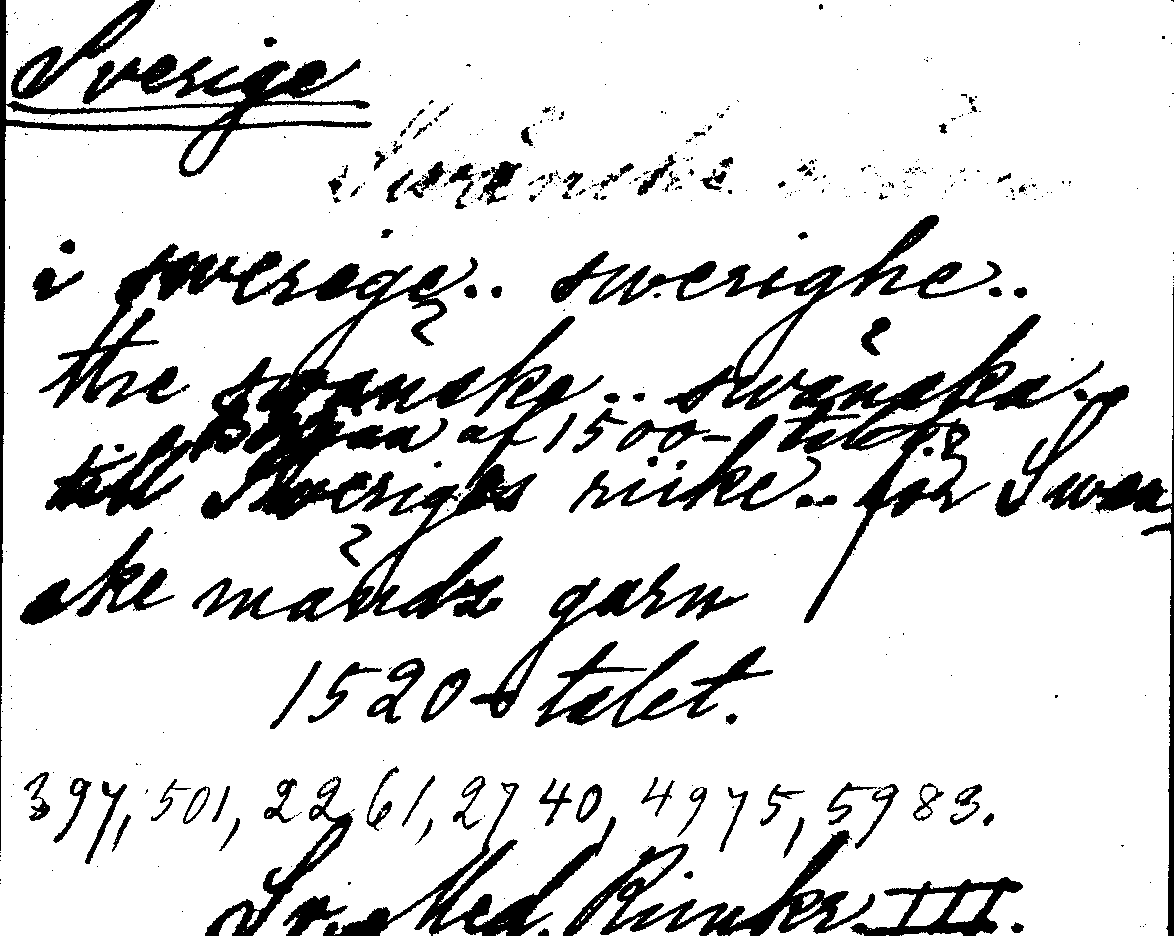 Sverige
Swänske
i swerege.. swerighe..
the swänske.. swänska..
Början af 1500-talet?
till Sweriges riike.. för Swen-
ske mändz garn
1520-talet.
397, 501, 2261, 2740, 4975, 5983.
Sv. Med. Rimkr. III.